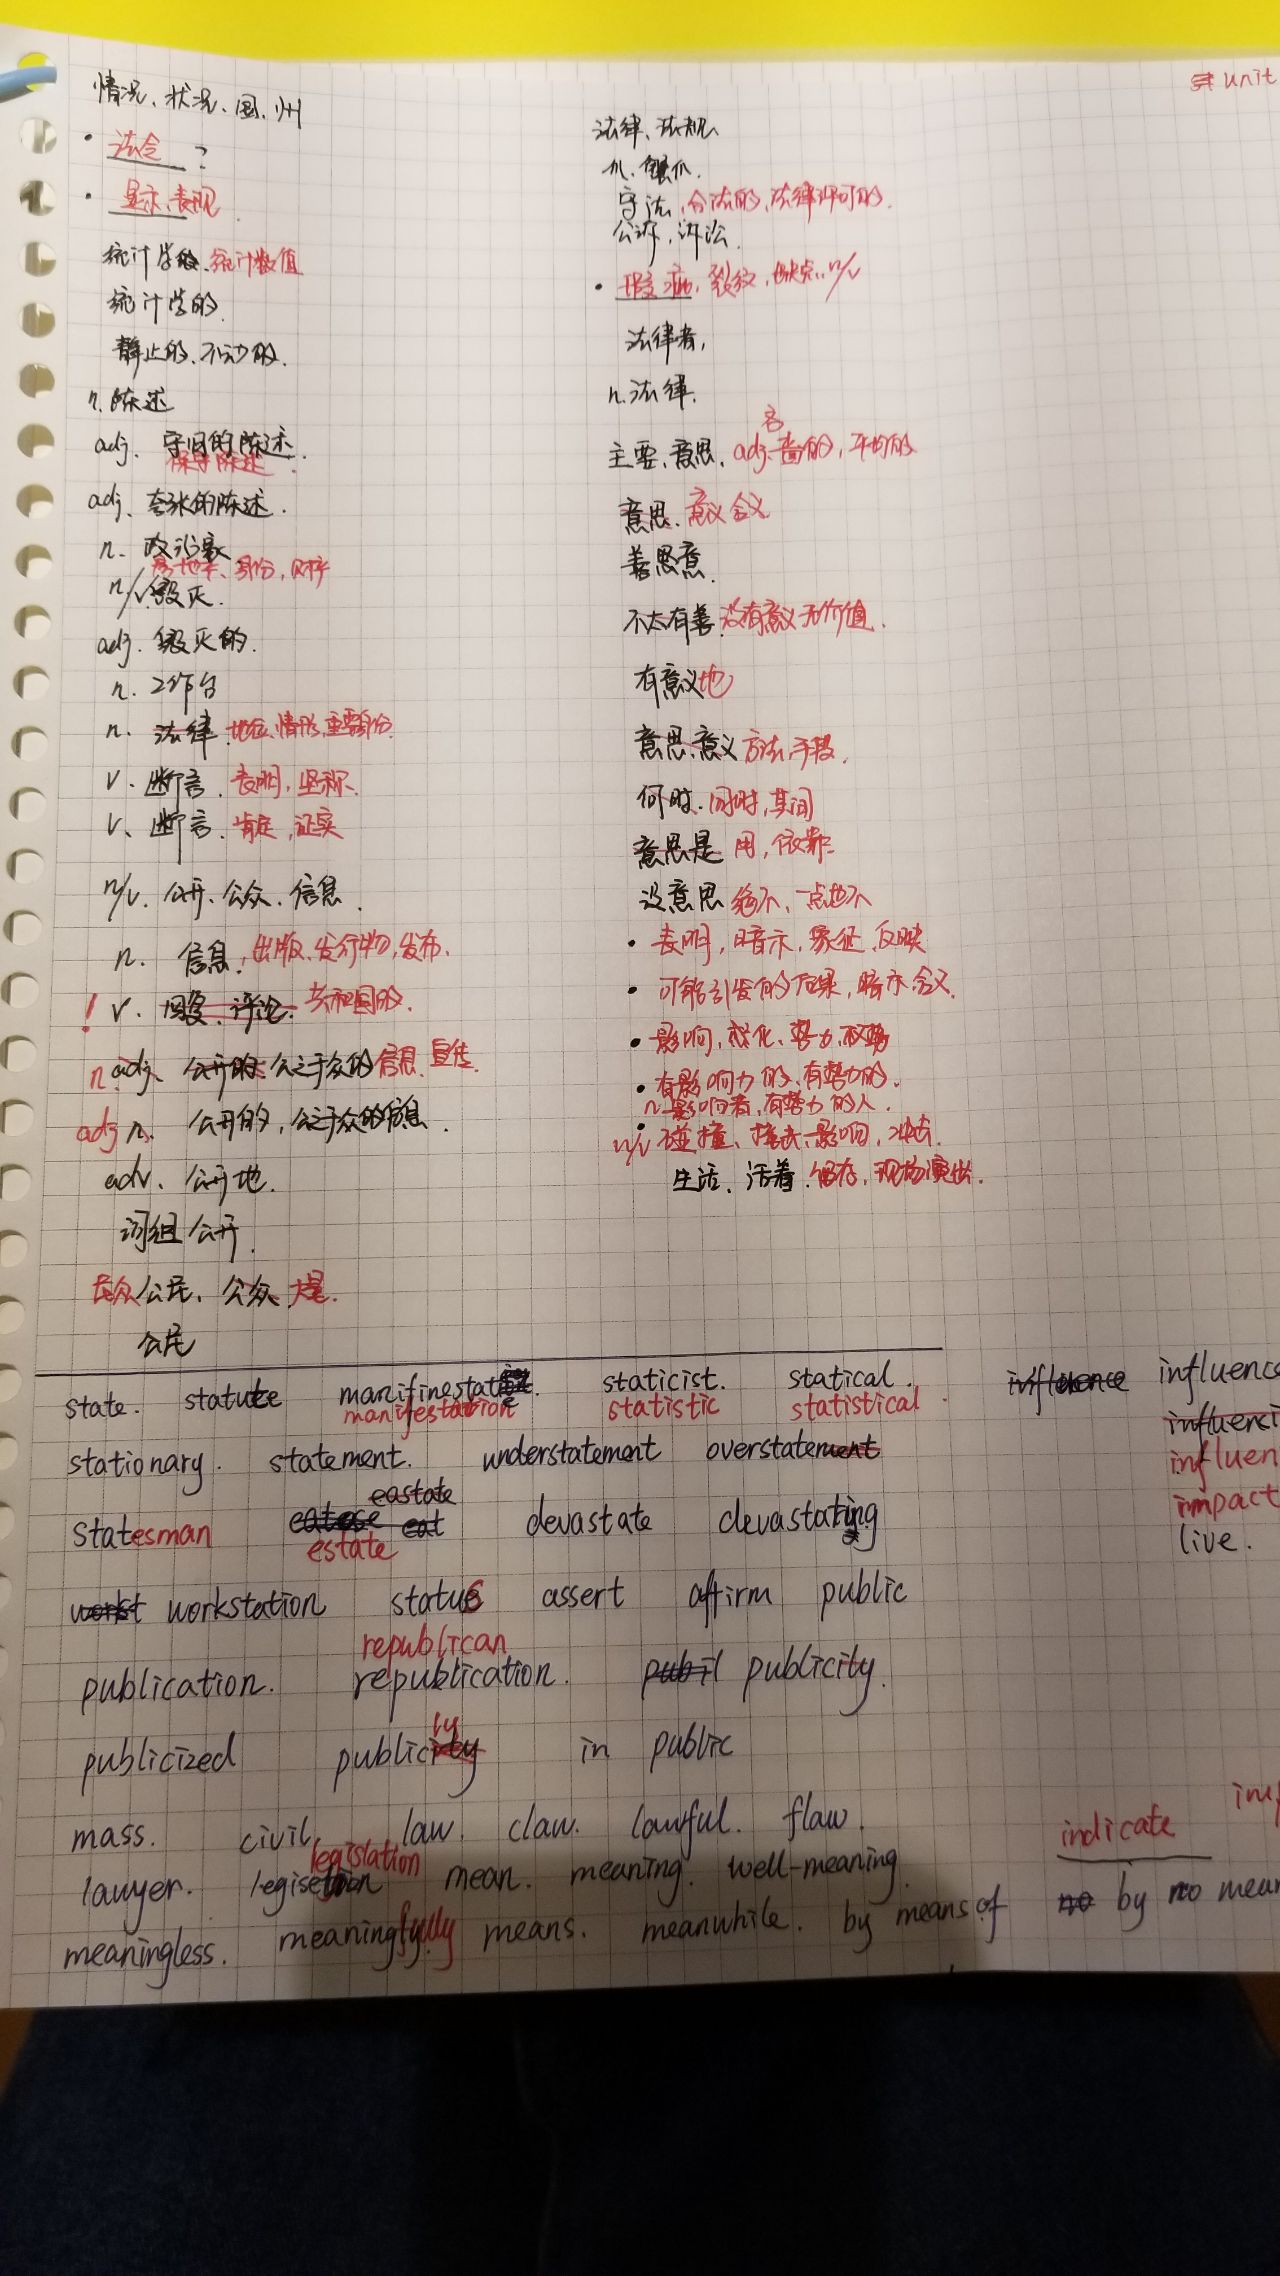 unit
情况、状况、国、州
法令 ?
显示、表现
统计学的、统计数值
统计学的
静止的、不动的.
n. 陈述
adj. 守旧的陈述.
保守陈述
adj. 夸张的陈述.
n. 政治家
身份,
n/v. 毁灭.
adj. 毁灭的.
n. 工作台
n. 法律. 地位、情形,重要身份.
v. 断言. 表明, 坚称.
v. 断言. 肯定, 证实
n/v. 公开、公众、信息.
n. 信息. 出版、发行物, 发布.
! v. 回复 评论. 共和国的.
n. adj. 公开的 公之于众的信息. 宣传.
adj n. 公开的, 公之于众的信息.
adv. 公开地.
词组 公开.
民众 公民、公众 大量.
公民
法律、法规
爪、蟹爪.
守法, 合法的, 法律许可的.
公诉, 诉讼.
瑕疵, 裂纹, 缺点. n/v
法律者,
n. 法律.
主要、意思. adj. 吝啬的, 平均的
意思. 意义 含义
善意思.
不太有善. 没有意义 无价值.
有意义地
意思、意义 方法,手段.
何时. 同时, 其间
意思是 用, 依靠
没意思 绝不、一点也不
表明, 暗示, 象征, 反映
可能引发的后果, 暗示, 含义.
影响, 感化、势力, 权势
有影响力的, 有势力的.
n. 影响者, 有势力的人.
n/v 碰撞、撞击、影响, 冲击.
生活、活着. 保存, 现场演出.
state. statute manifinestate. staticist. statical. influence influence
manifestation statistic statistical. influenci
stationary. statement. understatement overstatement influen
eastate impact
statesman eatese eat devastate devastating live.
estate
workst workstation status assert affirm public
republican
publication. republication. pubil publicity.
ly
publicized publicity in public
mass. civil. law. claw. lawful. flaw. indicate im
legislation
lawyer. legisetion mean. meaning. well-meaning.
meaningless. meaningfully means. meanwhile. by means of no by no mean